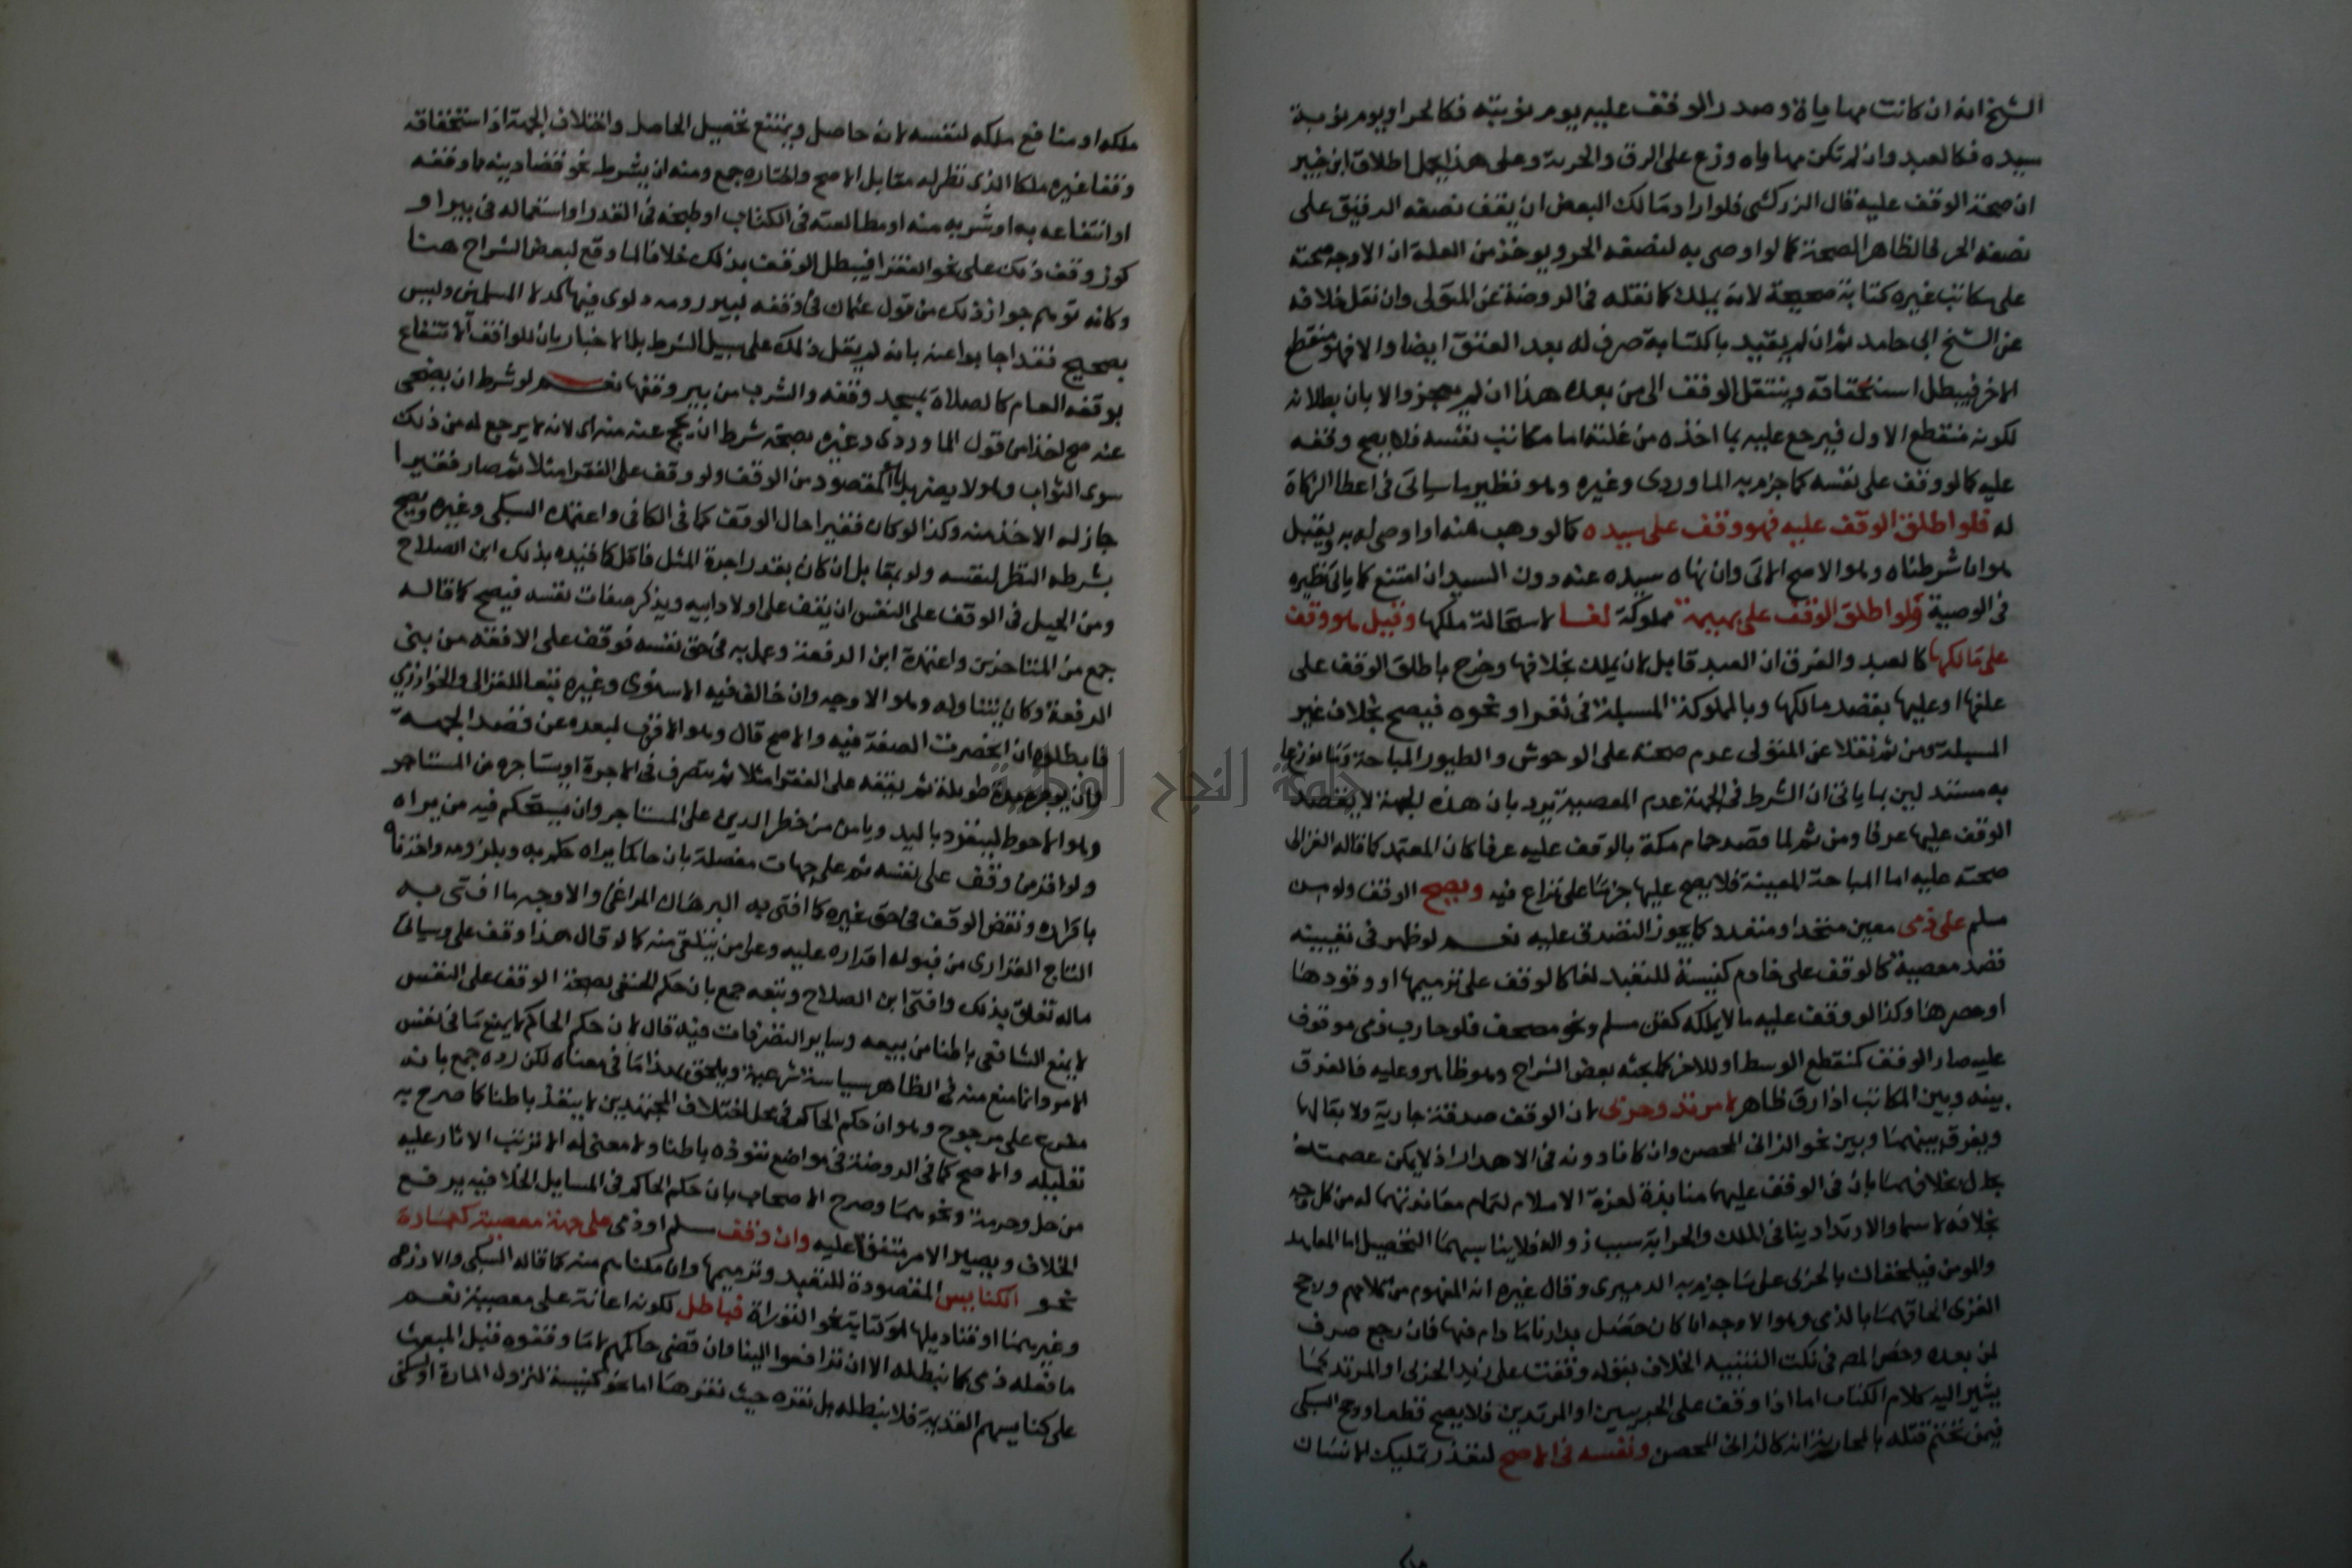 الشيخ انه ان كانت مهاياة وصدر الوقف عليه يوم نوبته فكالحر او يوم نوبة
سيده فكالعبد وان لم تكن مهاياه وزع على الرق والحرية وعلى هذا يحمل اطلاق ابن خيران
ان صحة الوقف عليه قال الزركشي فلو اراد مالك البعض ان يقف نصفه الرقيق على
نصفه الحر فالظاهر الصحة كما لو اوصى به لنصفه الحر ويوخذ من العلة ان الاوجه صحته
على مكاتب غيره كتابة صحيحة لانه يملك كما نقله في الروضة عن المتولى وان نقل خلافه
عن الشيخ ابى حامد ثم ان لم يقيد بالكتابة صرف له بعد العتق ايضا والا فهو منقطع
الاخر فيبطل استحقاقه وينتقل الوقف الى من بعده هذا ان لم يعجز والا بان بطلانه
لكونه منقطع الاول فيرجع عليه بما اخذه من غلته اما مكاتب نفسه فلا يصح وقفه
عليه كما لو وقف على نفسه كما جزم به الماوردى وغيره وهو نظير ما سياتى فى اعطا الزكاة
له فلو اطلق الوقف عليه فهو وقف على سيده كما لو وهب منه او اوصى له به ويقبل
هو انا شرطناه وهو الاصح الاتى وان نهاه سيده عنه دون السيد ان امتنع كما ياتى نظيره
فى الوصية فلو اطلق الوقف على بهيمة مملوكة لغا لاستحالة ملكها وقيل هو وقف
على مالكها كالعبد والفرق ان العبد قابل لان يملك بخلافها وخرج باطلق الوقف على
علفها او عليها بقصد مالكها وبالمملوكة المسبلة فى ثغر او نحوه فيصح بخلاف غير
المسبلة ومن ثم نقلا عن المتولى عدم صحته على الوحوش والطيور المباحة
به مستند لين بما ياتى ان الشرط فى الجهة عدم المعصية يرد بان هذه الجهة لا يقصد
الوقف عليها عرفا ومن ثم لما قصد حمام مكة بالوقف عليه عرفا كان المعتمد كما قاله الغزالى
صحته عليه اما المباحة المعينة فلا يصح عليها جزما على نزاع فيه ويصح الوقف ولو من
مسلم على ذمى معين متحد او متعدد كما يجوز التصدق عليه نعم لو ظهر فى تعيينه
قصد معصية كالوقف على خادم كنيسة للتعبد لغا كالوقف على ترميمها او وقودها
او حصرها وكذا لو وقف عليه ما لا يملكه كقن مسلم ونحو مصحف فلو حارب ذمى موقوف
عليه صار الوقف كمنقطع الوسط او للاخر كما بحثه بعض الشراح وهو ظاهر وعليه فالفرق
بينه وبين المكاتب اذا رق ظاهر لا مرتد وحربى لان الوقف صدقة جارية ولا بقا لها
ويفرق بينهما وبين نحو الزانى المحصن وان كانا دونه فى الاهدار اذ لا يمكن عصمته
بحال بخلافهما بان فى الوقف عليهما منابذة لعزة الاسلام لتمام معاندتهما له من كل وجه
بخلافه لا سيما والارتداد ينافى الملك والحرابة سبب زواله فلا يناسبهما التحصيل اما المعاهد
والمومن فيلحقان بالحربى على ما جزم به الدميرى وقال غيره انه المفهوم من كلامهم ورجح
الغزى الحاقهما بالذمى وهو الاوجه انا كان حصل بدارنا ما دام فيها فان رجع صرف
لمن بعده وخص المصـ فى نكت التنبيه الخلاف بقوله وقفت على زيد الحربى او المرتد كما
يشير اليه كلام الكتاب اما اذا وقف على الحربيين او المرتدين فلا يصح قطعا ورجح السبكى
فيمن تحتم قتله بالمحاربة انه كالزانى المحصن ونفسه فى الاصح لتعذر تمليك الانسان
ملكه
ملكه او منافع ملكه لنفسه لانه حاصل ويمتنع تحصيل الحاصل واختلاف الجهة اذ استحقاقه
وقفا غيره ملكا الذى نظر له مقابل الاصح واختاره جمع ومنه ان يشرط نحو قضا دينه مما وقفه
او انتفاعه به او شربه منه او مطالعته فى الكتاب او طبخه فى القدر او استعماله فى بير او
كوز وقف ذلك على نحو الفقرا فيبطل الوقف بذلك خلافا لما وقع لبعض الشراح هنا
وكانه توهم جواز ذلك من قول عثمان فى وقفه لبير رومه دلوى فيها كدلا المسلمين وليس
بصحيح فقد اجابوا عنه بانه لم يقل ذلك على سبيل الشرط بل الاخبار بان للواقف الانتفاع
بوقفه العام كالصلاة بمسجد وقفه والشرب من بير وقفها نعم لو شرط ان يضحى
عنه صح اخذا من قول الماوردى وغيره بصحة شرط ان يحج عنه منه اى لانه لا يرجع له من ذلك
سوى الثواب وهو لا يضر بل هو المقصود من الوقف ولو وقف على الفقرا مثلا ثم صار فقيرا
جاز له الاخذ منه وكذا لو كان فقيرا حال الوقف كما فى الكافى واعتمده السبكى وغيره ويصح
بشرطه النظر لنفسه ولو بمقابل ان كان بقدر اجرة المثل فاقل كما قيده بذلك ابن الصلاح
ومن الحيل فى الوقف على النفس ان يقف على اولاد ابيه ويذكر صفات نفسه فيصح كما قاله
جمع من المتاخرين واعتمده ابن الرفعة وعمل به فى حق نفسه فوقف على الافقه من بنى
الرفعة وكان يتناوله وهو الاوجه وان خالف فيه الاسنوى وغيره تبعا للغزالى والخوارزمى
فابطلوه ان انحصرت الصفة فيه والاصح قال وهو الاقرب لبعده عن قصد الجهة
وان يوجره مدة طويلة ثم يقفه على الفقرا مثلا ثم يتصرف فى الاجرة او يستاجره من المستاجر
وهو الاحوط لينفرد باليد ويامن من خطر الدين على المستاجر وان يستحكم فيه من يراه
ولو اقر من وقف على نفسه ثم على جهات مفصلة بان حاكما يراه حكم به وبلزومه واخذناه
باقراره ونقض الوقف فى حق غيره كما افتى به البرهان المراغى والاوجه ما افتى به
التاج الفزارى من قبوله اقراره عليه وعلى من يتلقى منه كما لو قال هذا وقف على وسياتى
ماله تعلق بذلك وافتى ابن الصلاح وتبعه جمع بان حكم الحنفى بصحة الوقف على النفس
لا يمنع الشافعى باطنا من بيعه وساير التصرفات فيه قال لان حكم الحاكم لا يمنع ما فى نفس
الامر وانما منع منه فى الظاهر سياسة شرعية ويلحق بهذا ما فى معناه لكن رده جمع بانه
مفرع على مرجوح وهو ان حكم الحاكم فى محل اختلاف المجتهدين لا ينفذ باطنا كما صرح به
تعليله والاصح كما فى الروضة فى مواضع نفوذه باطنا ولا معنى له الا ترتب الاثار عليه
من حل وحرمة ونحوهما وصرح الاصحاب بان حكم الحاكم فى المسايل الخلافيه يرفع
الخلاف ويصير الامر متفقا عليه وان وقف مسلم او ذمى على جهة معصية كعمارة
نحو الكنايس المقصودة للتعبد وترميمها وان مكناهم منه كما قاله السبكى والاذرعى
وغيرهما او قناديلها او كتابة نحو التوراة فباطل لكونه اعانة على معصية نعم
ما فعله ذمى لا نبطله الا ان ترافعوا الينا وان قضى حاكمهم لا ما وقفوه قبل المبعث
على كنايسهم القديمة فلا نبطله بل نقره حيث نقرها اما نحو كنيسة لنزول المارة او سكنى
جامعة النجاح الوطنية